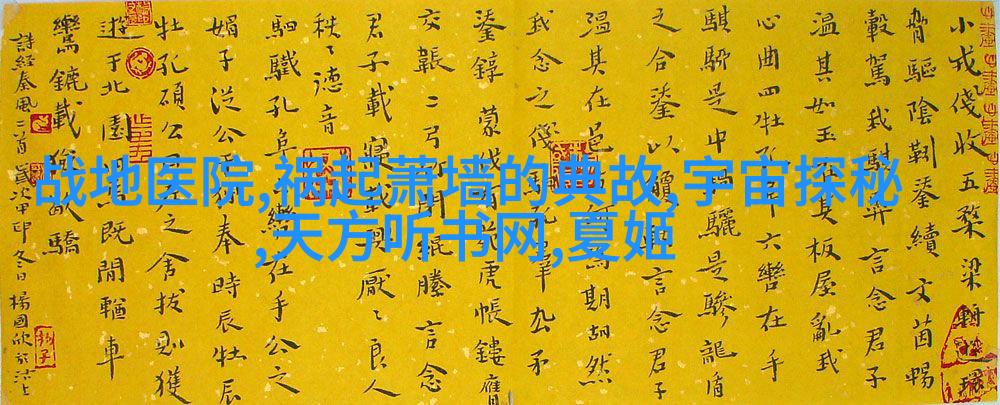 战地医院,祸起萧墙的典故,宇宙探秘
,天方听书网,夏姬
小戎俴收五楘梁
脅驅陰靷鋈續文茵暢
轂駕我騏馵言念君子
溫其如玉在其板屋亂我
心曲四牡孔六轡在手
騏駵是中驪是驂龍盾
之合鋈以觼言念君子
溫其在邑為期胡然
我念之俴駟孔群厹矛
鋈錞蒙伐有虎帳鏤膺
交韔二弓閉緄縢言念
君子載寢載興厭〻良人
秩〻德音
駟驖孔阜六轡在手公之
媚子從公奉時辰牡辰
牡孔碩公之舍拔則獲
遊于北園四馬既閒輶車
鸞鑣載驕
詩經秦風二首歲次甲申冬日楊國欣於